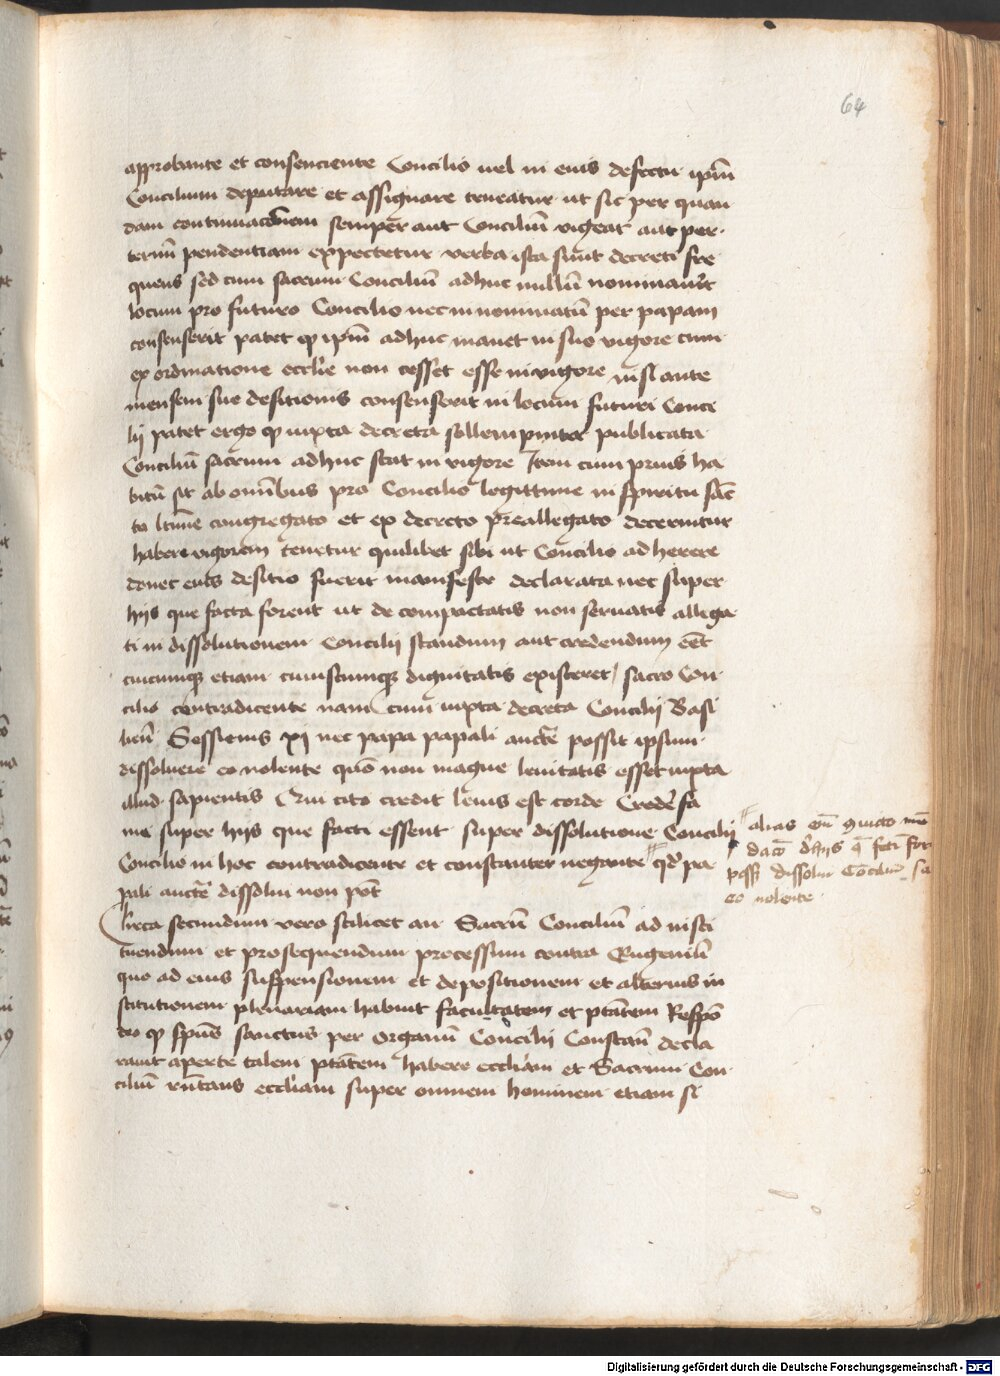 64
approbante et consenciente Concilio uel in euis defectu ipm̄
Concilium deputare et assignare teneatur ut sic per quan
dam continuacōnem semper aut Conciliū vigeat aut per
termī pendentiam expectetur verba ista sunt decreti fre
quens sed cum sacrum Conciliū adhuc nullū nominauīt
locum pro futuro Concilio nec in nominatū per papam
consenserit patet q ipm̄ adhuc manet in suo vigore cum
ex ordinatione eccl'ie non cesset esse in vigore nisi ante
mensem sue desitionis consenserit in locum futuri Conci
lij patet ergo q iuxta decreta sollempniter publicata
Conciliū sacrum adhuc stat in vigore Item cum prius ha
bitū sit ab omībus pro Concilio legittime in spiritu sāc
to ltīme congregato et ex decreto preallegato decernitur
habere vigorem tenetur quilibet sibi ut Concilio adherere
donec euis desitio fuerit manifeste declarata nec super
hijs que facta forent ut de compactatis non seruatis allega
ti in dissolutionem Concilij standum aut credendum eēt
cuicumq etiam cuiuscumq dignitatis existeret / sacro Con
cilio contradicente nam cum iuxta decreta Concilij Basi
lien̄ Sessionis xj nec papa papali aucte possit ipsum
dissoluere eo nolente quō non magne leuitatis esset iuxta
illud sapientis Qui cito credit leuis est corde Crede fa
me super hijs que facti essent super dissolutione Concilij
Concilio in hoc contradicente et constanter negante qd' pa
pali aucte dissolui non pōt
alias
dissolui Conciliū
eo nolente
Circa secundum vero scilicet an Sacrū Conciliū ad insti
tuendum et prosequendum processum contra Eugeniū
quo ad euis suspensionem et depositionem et alterius in
stitutionem plenariam habuit facultatem et ptātem Respō
deo q spūs sanctus per organū Concilij Constan̄ decla
rauit aperte talem ptātem habere eccl'iam et Sacrum Con
cilium rn̄tans eccl'iam super omnem hominem etiam si
Digitalisierung gefördert durch die Deutsche Forschungsgemeinschaft - DFG